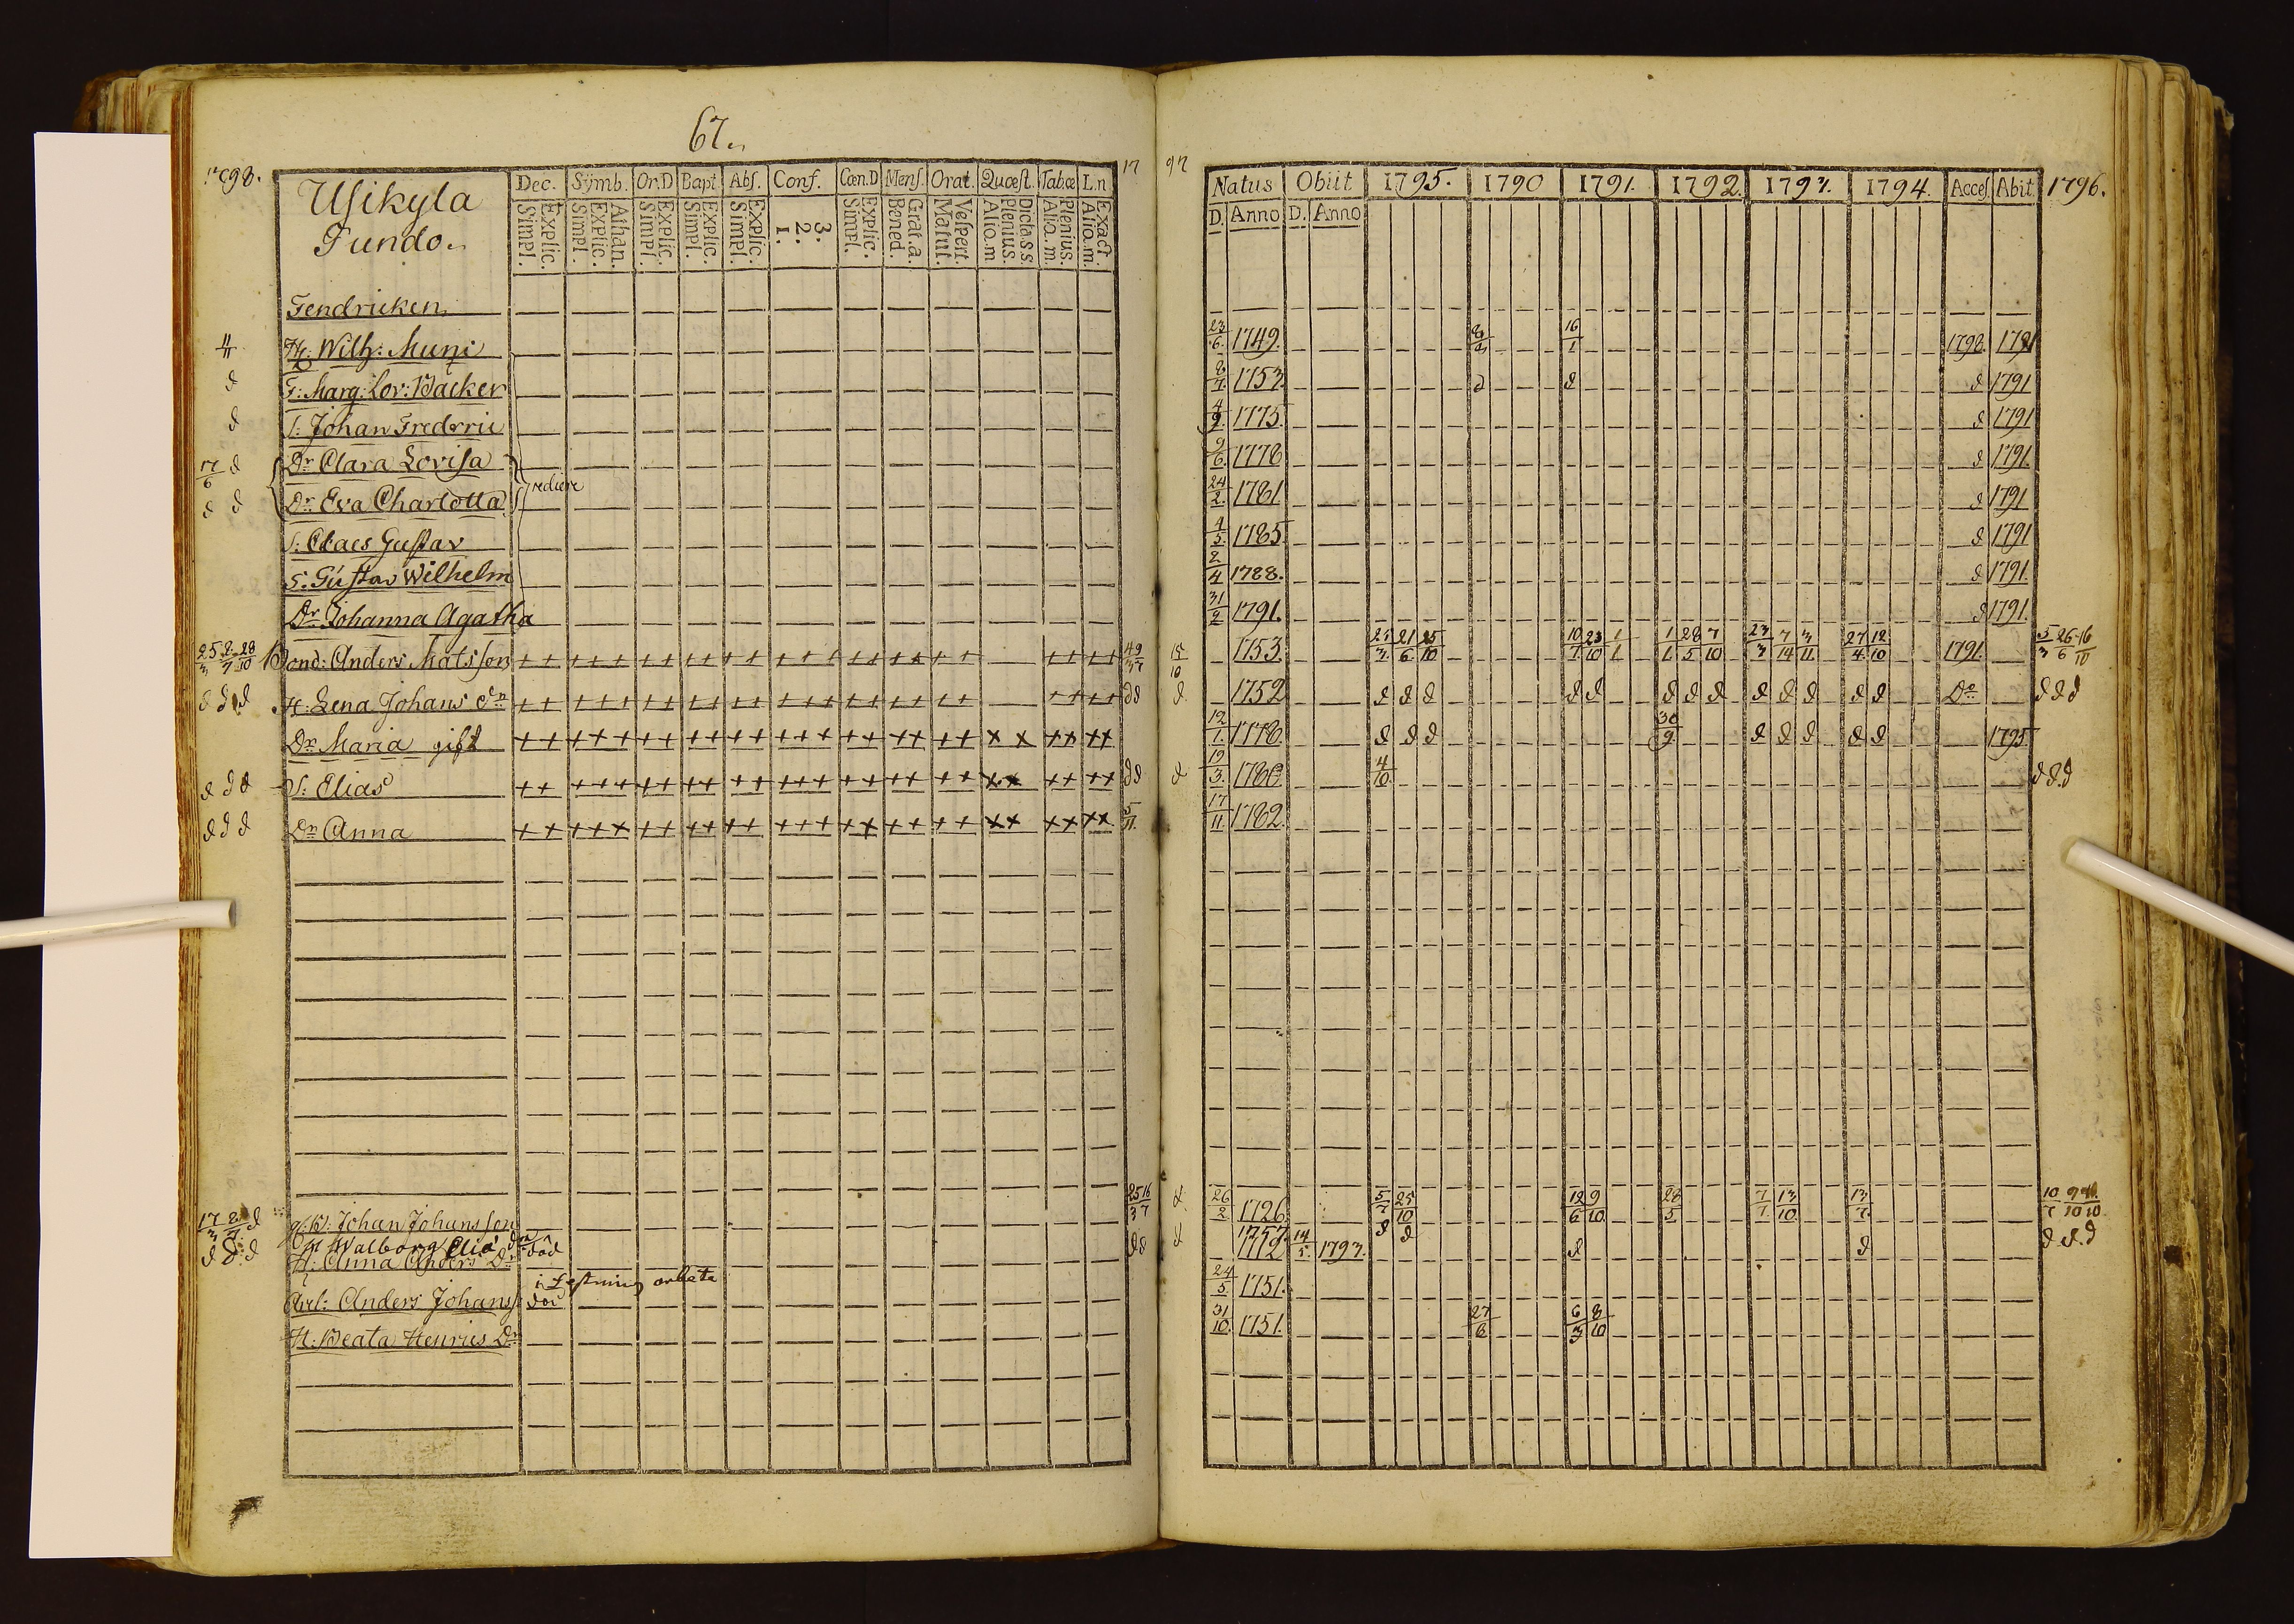 67.
1798.
Usikyla
Fundo.
Dec. Symb. Or.D Bapt. Abs. Conf. Cœn.D Mens. Orat. Quæst. Tab.œ L.n
Explic. Simpl. Athan. Explic. Simpl. Explic. Simpl. Explic. Simpl. Explic. Simpl. 3. 2. 1. Explic. Simpl. Grat.a. Bened. Vespert. Matut. Dicta s.s. Plenius. Alio.m Plenius. Alio.m. Exact. Alio.m.
17
Fendricken
Hr. Wilh: Muni
F: Marg: Lov: Backer
S: Johan Fredric
17/6 d Dr Clara Lovisa
d d Dr Eva Charlotta rediere
S: Claes Gustav
S: Gustav Wilhelm
Dr Johanna Agatha
25/3 8/7 28/10 Bond: Anders Matsson
d d d H: Lena Johans dr
Dr Maria gift
d d d S: Elias
d d d Dr Anna
Johan Johansson
H Walborg Elia dr död
H: Anna Anders Dr
i Festnings arbete
Anders Johanss
H: Beata Henrics Dr
97
Natus Obiit 1795. 1790 1791. 1792. 1793. 1794. Access Abit. 1796.
D. Anno D. Anno
23/6 1749. 16/1 1791
8/7 1753 d d d 1791
4/9 1775 d 1791
9/6 1778 d 1791
24/2 1781 d 1791
4/5 1785 d 1791
2/4 1788. d 1791.
31/2 1791. d 1791.
1753. 25/3 21/6 25/10 10/7 23/10 1/1 1/1 28/5 7/10 23/3 7/14 3/11 27/4 12/10 1791. 5/3 26/6 16/10
1752 d d d d d d d d d d d d d Do d d d
12/1 1778 d d d 30/9 d d d d d 1795
19/3 1780 4/10 d d d
17/11 1782.
26/2 1726 5/7 25/10 12/6 9/10 28/5 7/1 13/10 13/7
1757 d d
1752 14/5 1793. d d d d d
24/5 1751.
31/10 1751. 27/8 6/3 8/10